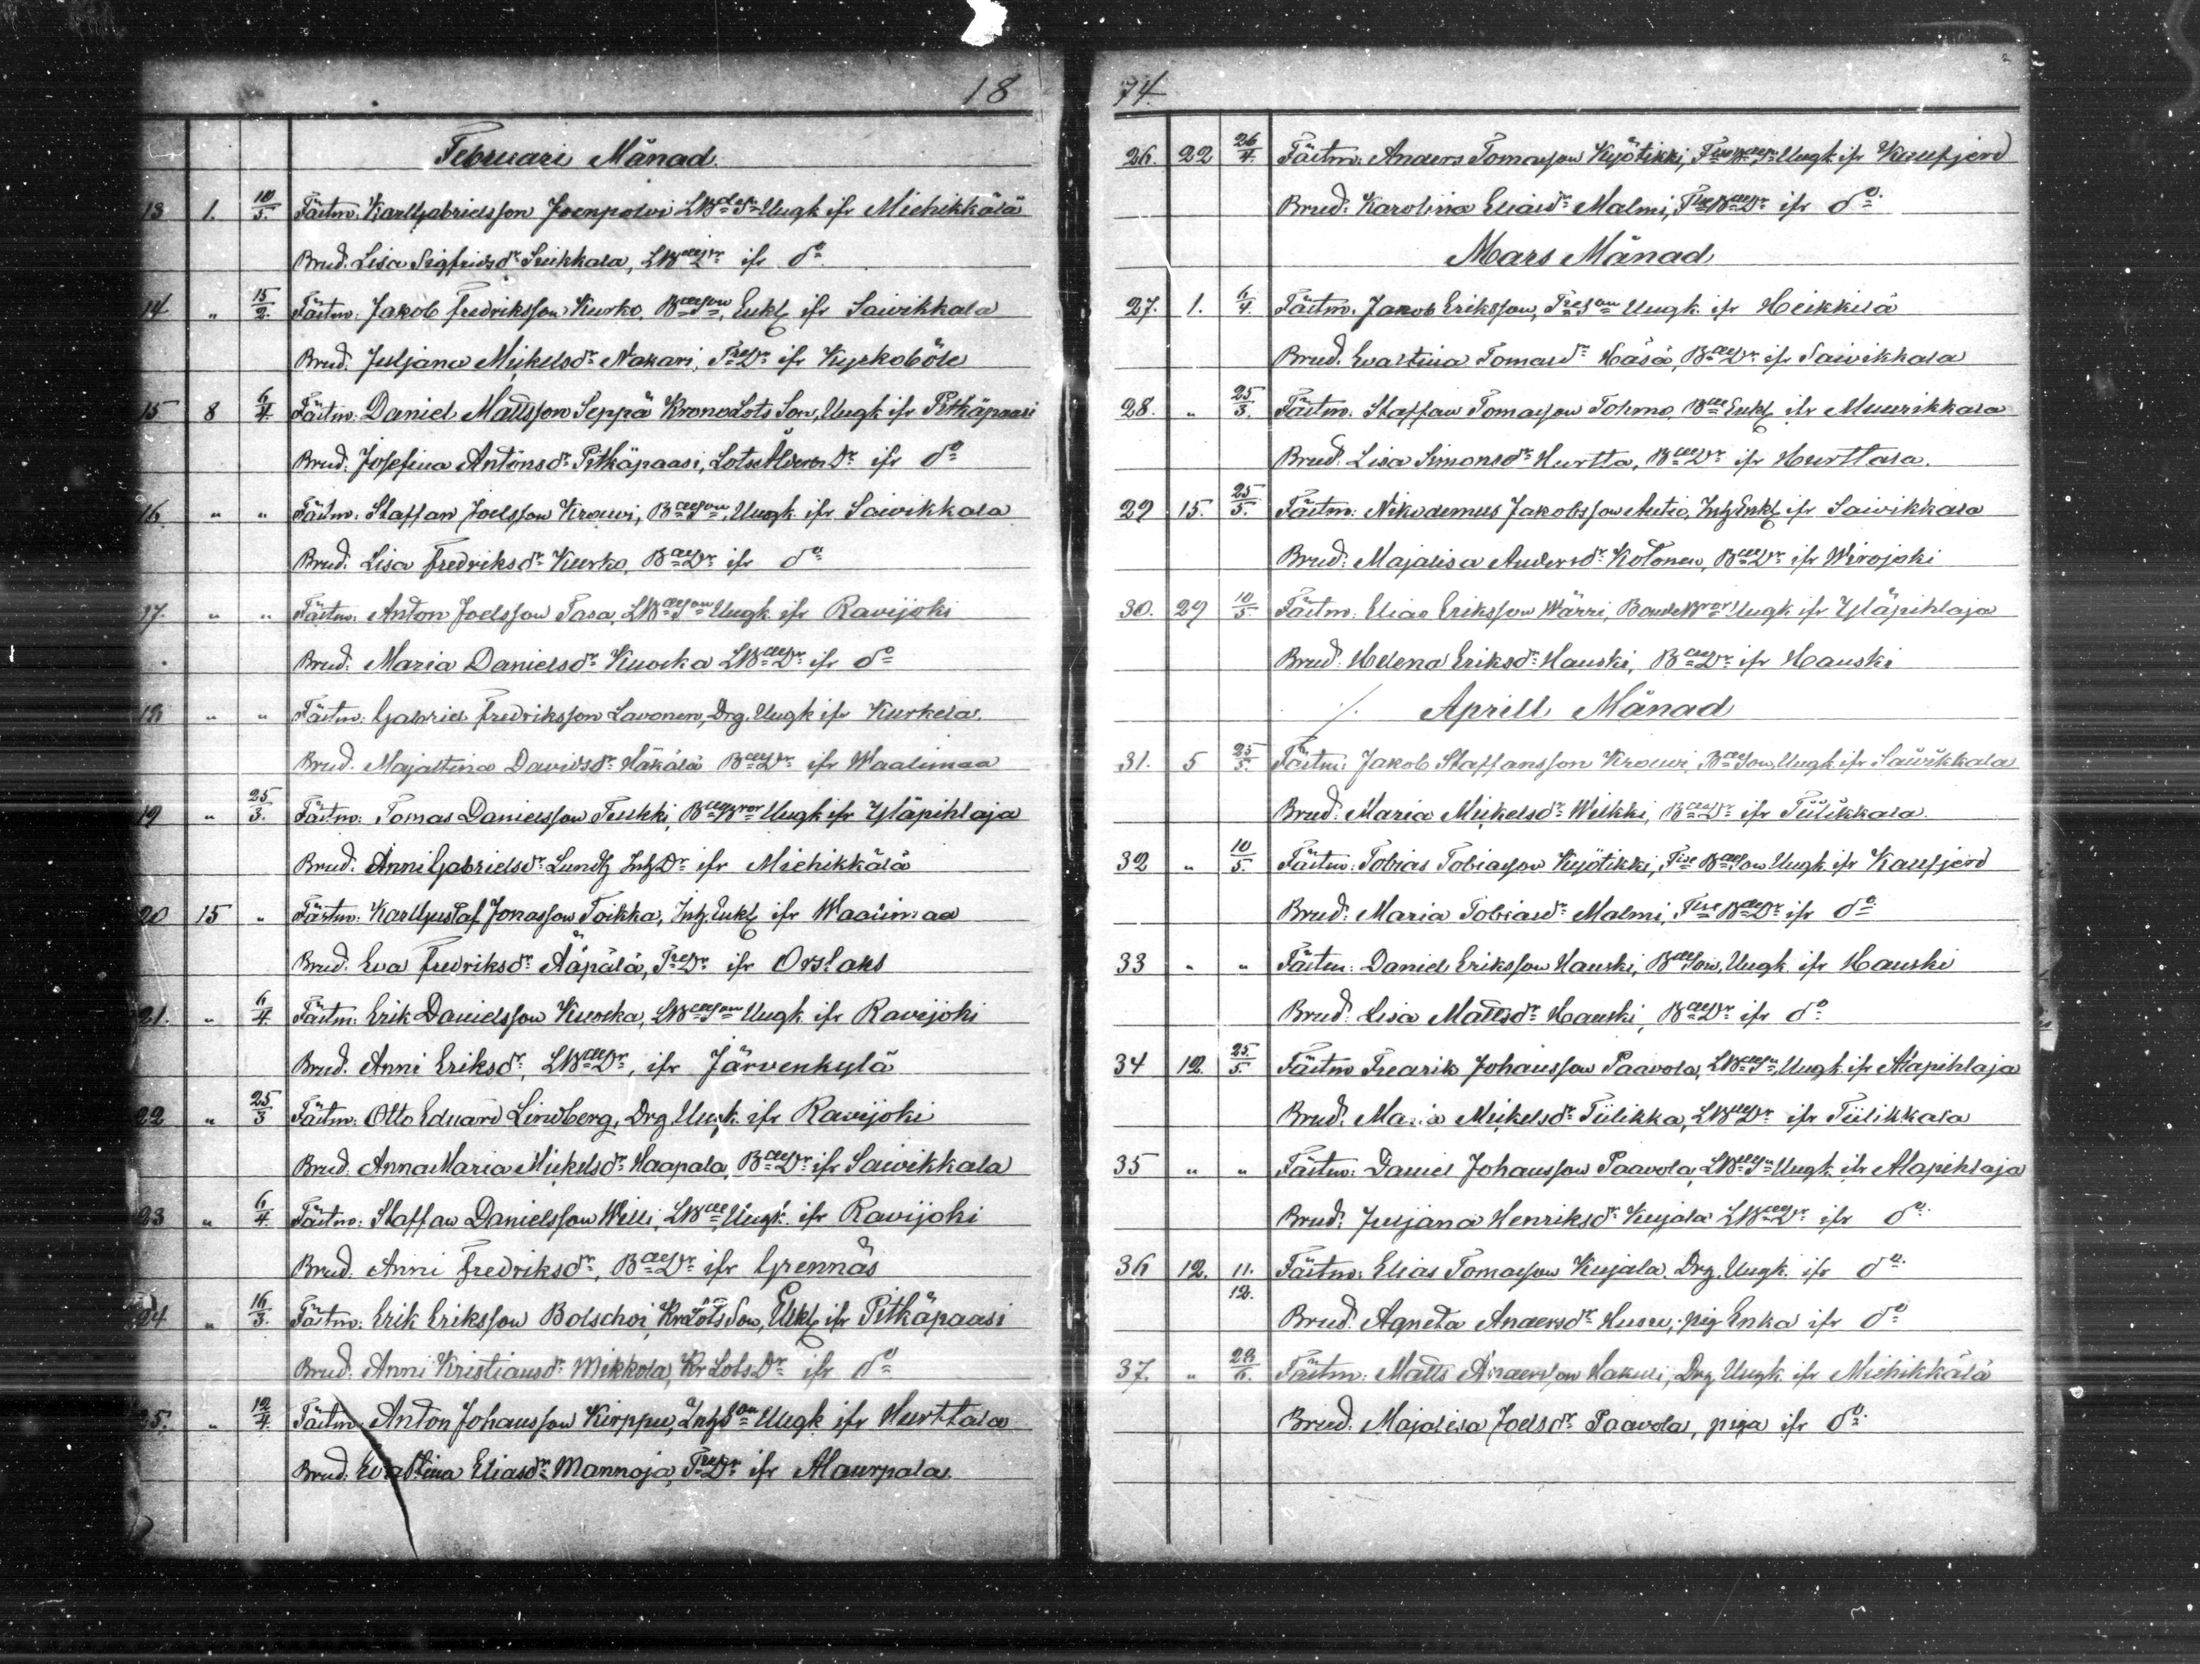 18
Februari Månad.
13 1. 10/5. Fästm: Karl Gabrielsson Joenpolvi LBdeSn Ungk ifr Miehikkälä
Brud. Lisa Sigfridsdr Suikkala, LBdeDr ifr do
14 " 15/2. Fästm: Jakob Fredriksson Kurko, BdeSon, Enkl ifr Saivikkala
Brud. Juljana Mickelsdr Nakari, TreDr ifr Kyrkoböle
15 8 6/4. Fästm: Daniel Mattsson Seppä KronoLots Son, Ungk ifr Pitkäpaasi
Brud: Josefina Antonsdr Pitkäpaasi, Lots Dr ifr do
16 " " Fästm: Staffan Joelsson Krouvi, BdeSon, Ungk ifr Saivikkala
Brud. Lisa Fredriksdr Kurko, BdeDr ifr do
17. " " Fästm: Anton Joelsson Tasa, LBdeSon Ungk ifr Ravijoki
Brud: Maria Danielsdr Kuokka LBdeDr ifr do
18 " " Fästm: Gabriel Fredriksson Lavonen, Drg. Ungk ifr Kurkela.
Brud. Majastina Davidsdr Häkälä BdeDr ifr Waalimaa
19 " 25/3. Fästm: Tomas Danielsson Tuukki, BdeBror Ungk ifr Yläpihlaja
Brud. Anni Gabrielsdr Lundg InhDr ifr Miehikkälä
20 15 " Fästm: Karl Gustaf Jonasson Toikka, Inh. Enkl ifr Waalimaa
Brud. Eva Fredriksdr Ääpälä, TreDr ifr Orslaks
21. " 6/4. Fästm: Erik Danielsson Kuokka, LBdeSon Ungk ifr Ravijoki
Brud. Anni Eriksdr, LBdeDr, ifr Järvenkylä
22 " 25/3 Fästm: Otto Eduard Lindberg, Drg Ungk. ifr Ravijoki
Brud. Anna Maria Mickelsdr Haapala, BdeDr ifr Saivikkala
23 " 6/4. Fästm: Staffan Danielsson Willi, LBde Ungk. ifr Ravijoki
Brud. Anni Fredriksdr, BdeDr ifr Grennäs
24. " 16/3. Fästm: Erik Eriksson Bolschoi, KrLots Son, Enkl ifr Pitkäpaasi
Brud. Anni Kristiansdr Mikkola, Kr LotsDr ifr do
25. " 12/4. Fästm: Anton Johansson Kirppu, InhSon Ungk ifr Hurttala
Brud: Evastina Eliasdr Mannoja, TreDr ifr Alaurpala.
74.
26. 22 26/4. Fästm: Anders Tomasson Kyötikki, TreBdeSn Ungk ifr Kaufjerd
Brud: Karolina Eliasdr Malmi, TreBdeDr ifr do
Mars Månad
27. 1. 6/4. Fästm. Jakob Eriksson, TreSon Ungk. ifr Heikkilä
Brud. Evastina Tomasdr Häsä, BdeDr ifr Saivikkala
28. " 25/3. Fästm. Staffan Tomasson Tohmo, Bde Enkl ifr Muurikkala
Brud. Lisa Simonsdr Hurtta, BdeDr ifr Hurttala.
29 15. 25/5. Fästm: Nikodemus Jakobsson Autio, Inh Enkl ifr Saivikkala
Brud: Majalisa Andersdr Kotonen, BdeDr ifr Wirojoki
30. 29 10/5. Fästm: Elias Eriksson Wärri, BondeBror Ungk ifr Yläpihlaja
Brud: Helena Eriksdr Hauski, BdeDr ifr Hauski
Aprill Månad
31. 5 25/5. Fästm: Jakob Staffansson Krouvi, BdeSon, Ungk ifr Saivikkala
Brud: Maria Mickelsdr Wilkki, BdeDr ifr Tiilikkala.
32 " 10/5. Fästm: Tobias Tobiasson Kyötikki, Tre BdeSon Ungk ifr Kaufjerd
Brud: Maria Tobiasdr Malmi, TreBdeDr ifr do
33 " " Fästm: Daniel Eriksson Hauski, BdeSon, Ungk. ifr Hauski
Brud: Lisa Mattsdr Hauski, BdeDr ifr do
34 12. 25/5. Fästm Fredrik Johansson Paavola, LBdeSn, Ungk. ifr Alapihlaja
Brud. Maria Mickelsdr Tiilikka, LBdeDr ifr Tiilikkala
35 " " Fästm: Daniel Johansson Paavola, LBdeSn Ungk ifr Alapihlaja
Brud. Juljana Henriksdr Kujala LBdeDr ifr do
36 12. 11./12. Fästm: Elias Tomasson Kujala, Drg. Ungk. ifr do
Brud. Agneta Andersdr Husu, pig Enka ifr do
37. " 28/6. Fästm: Matts Andersson Hakuli, Drg Ungk ifr Miehikkälä
Brud. Majalisa Joelsdr Paavola, piga ifr do